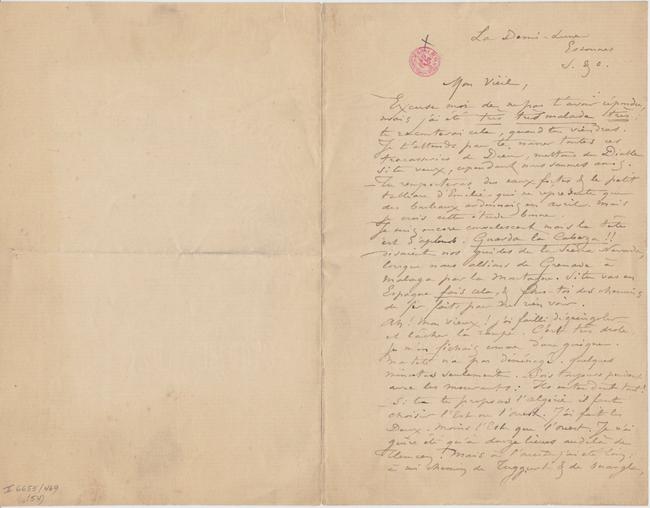 La Demi-Lune
Essonnes
S. & O.
Mon Vieil,
Excuse moi de ne pas t'avoir répondu,
mais j'ai été très très malade très!
te raconterai cela, quand tu viendras.
Je t'attends par te navrer toutes ces
tracasseries de Dieu, mettons du Diable
si tu veux, cependant nous sommes amis.
Tu remporteras des eaux fortes & le petit
tableau d'Emilie qui ne représente que
des bouleaux ardennais en avril. Mais
je crois cette étude bonne.
Je suis encore convalescent mais la tête
est d'aplomb. Guarda la Cabeza!!
disaient nos guides de la Sierra Nevada,
lorsque nous allions de Grenade à
Malaga par la montagne. Si tu vas en
Espagne fais cela, &
de fer faits pour ne rien voir.
Ah! mon vieux! j'ai failli dégringoler
et lâcher la rampe. C'est très drôle
je m'en fichais comme d'une guigne.
Ma tête n'a pas déménagé. quelques
minutes seulement. Sois toujours prudent
avec les mourants: Ils entendent tout!
Si tu te proposes l'Algérie il faut
choisir l'Est ou l'ouest. J'ai fait les
Deux. Moins l'Est que l'ouest. Je n'ai
guère été qu'à douze lieues au delà de
Tlemcen! Mais à l'ouest j'ai été loin:
à mi chemin de Tuggurt & de Ouargla,
I 6655/469
(54)